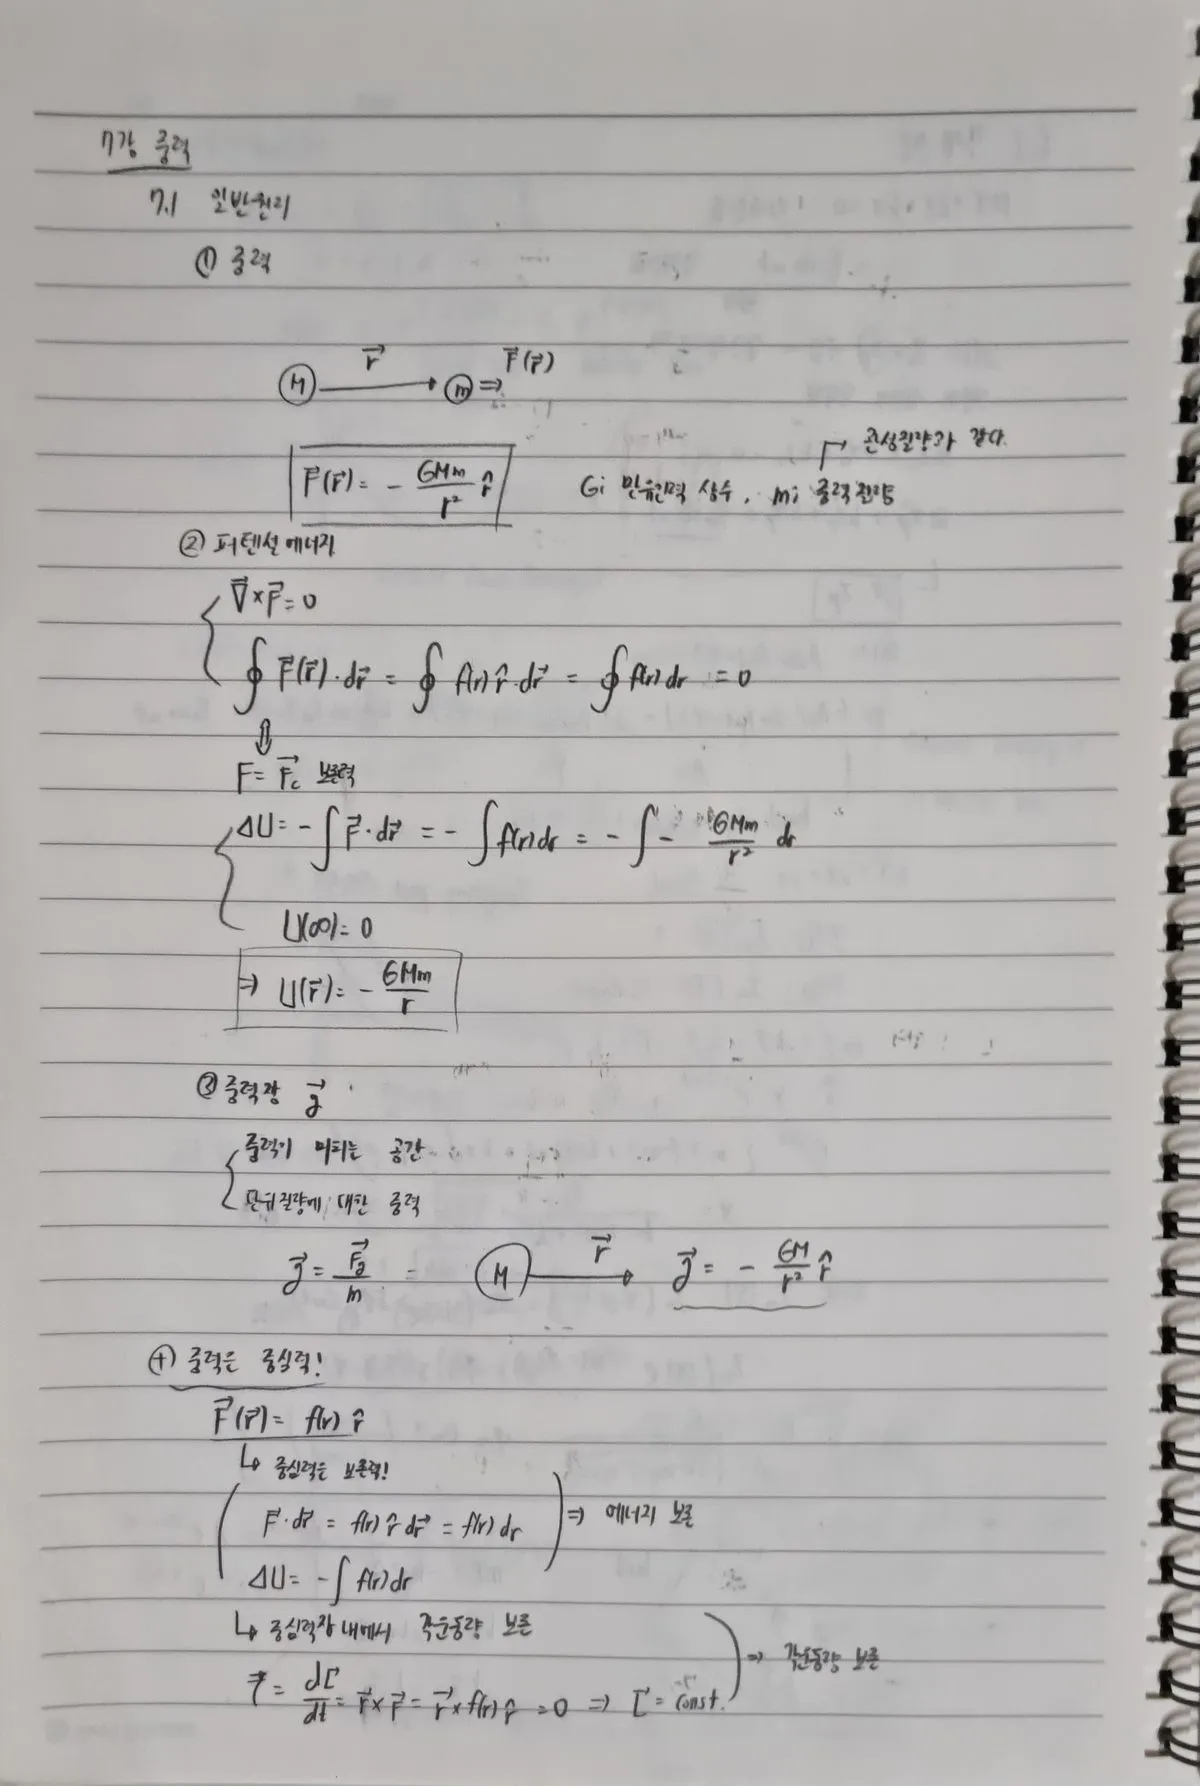 7강 중력
7.1 일반원리
① 중력
M r⃗ m ⇒ F⃗(r⃗)
↱ 관성질량과 같다.
F⃗(r⃗) = - GMm/r² r̂ G; 만유인력 상수, m; 중력질량
② 퍼텐셜에너지
∇⃗×F⃗ = 0
∮ F⃗(r⃗)·dr⃗ = ∮ f(r) r̂·dr⃗ = ∮ f(r) dr = 0
⇕
F = F⃗c 보존력
ΔU = - ∫ F⃗·dr⃗ = - ∫ f(r) dr = - ∫ - GMm/r² dr
U(∞) = 0
⇒ U(r⃗) = - GMm/r
③ 중력장 g⃗
중력이 미치는 공간
단위질량에 대한 중력
g⃗ = F⃗g/m = M r⃗ g⃗ = - GM/r² r̂
⊕ 중력은 중심력!
F⃗(r⃗) = f(r) r̂
↳ 중심력은 보존력!
F⃗·dr⃗ = f(r) r̂ dr⃗ = f(r) dr ⇒ 에너지 보존
ΔU = - ∫ f(r) dr
↳ 중심력장 내에서 각운동량 보존
τ⃗ = dL⃗/dt = r⃗×F⃗ = r⃗×f(r) r̂ = 0 ⇒ L⃗ = const. ⇒ 각운동량 보존